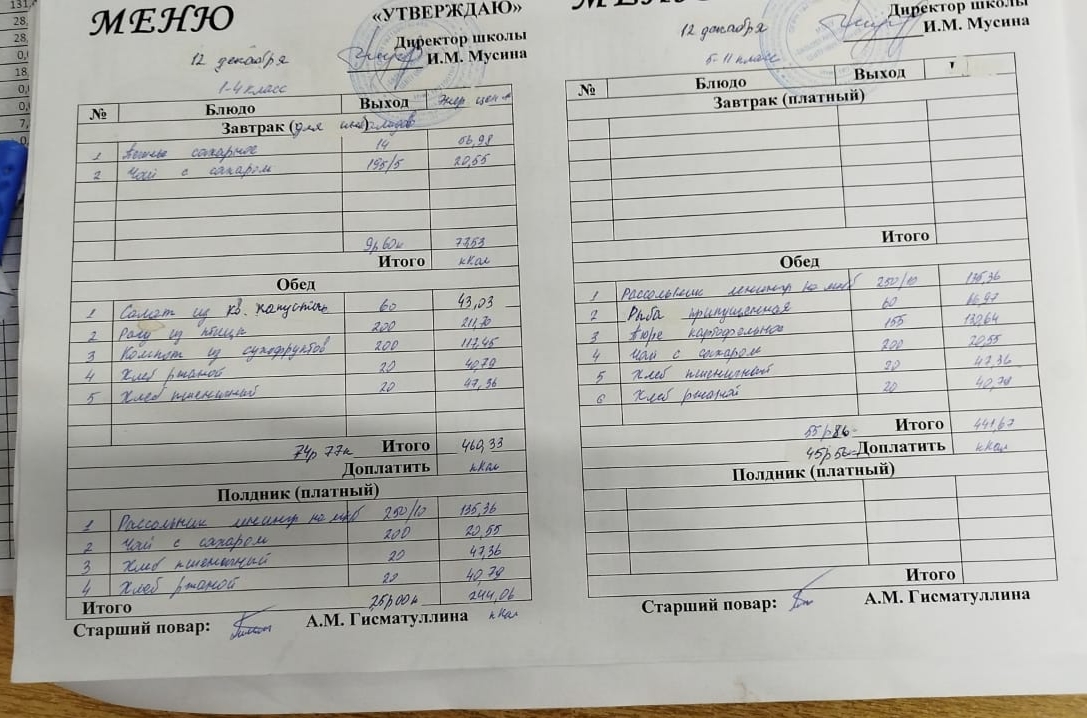 МЕНЮ
«УТВЕРЖДАЮ»
Директор школы
И.М. Мусина
12 декабря
1-4 класс
№ Блюдо Выход Энер. цен-ть
Завтрак (для инвалидов)
1 Печенье сахарное 14 56,98
2 Чай с сахаром 195/5 20,55
9р 60к 77,53
Итого кКал
Обед
1 Салат из кв. капусты 60 43,03
2 Рагу из птицы 200 211,70
3 Компот из сухофруктов 200 117,45
4 Хлеб ржаной 20 40,79
5 Хлеб пшеничный 20 47,36
74р 77к Итого 460,33
Доплатить кКал
Полдник (платный)
1 Рассольник ленингр на м/кб 250/10 135,36
2 Чай с сахаром 200 20,55
3 Хлеб пшеничный 20 47,36
4 Хлеб ржаной 20 40,79
Итого 25р00к 244,06
Старший повар: А.М. Гисматуллина кКал
Директор школы
И.М. Мусина
12 декабря
5-11 класс
№ Блюдо Выход
Завтрак (платный)
Итого
Обед
1 Рассольник ленингр на м/кб 250/10 135,36
2 Рыба припущенная 60 66,97
3 Пюре картофельное 155 130,64
4 Чай с сахаром 200 20,55
5 Хлеб пшеничный 20 47,36
6 Хлеб ржаной 20 40,79
55р86- Итого 441,67
45р56- Доплатить кКал
Полдник (платный)
Итого
Старший повар: А.М. Гисматуллина